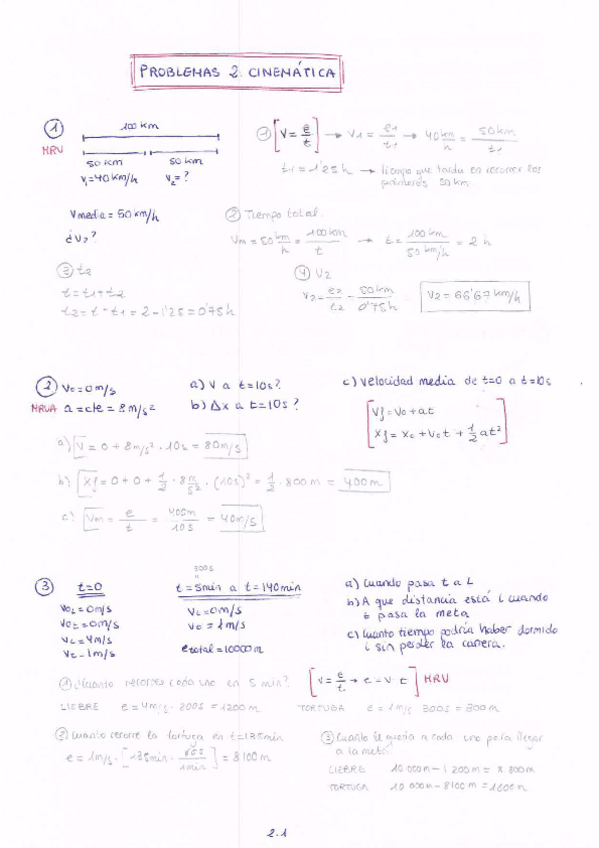 PROBLEMAS 2. CINEMÁTICA
① 100 km
MRV
50 km 50 km
V₁=40 km/h V₂=?
Vmedia = 50 km/h
¿V₂?
① [V = e/t] → V₁ = e₁/t₁ → 40 km/h = 50 km/t₁
t₁ = 1'25 h → tiempo que tarda en recorrer los
primeros 50 km
② Tiempo total.
Vm = 50 km/h = 100 km/t → t = 100 km/50 km/h = 2 h
③ t₂
t = t₁ + t₂
t₂ = t - t₁ = 2 - 1'25 = 0'75 h
④ V₂
V₂ = e₂/t₂ = 50 km/0'75 h V₂ = 66'67 km/h
② V₀ = 0 m/s
MRUA a = cte = 8 m/s²
a) V a t=10s?
b) Δx a t=10s?
c) Velocidad media de t=0 a t=10s
Vf = V₀ + at
Xf = X₀ + V₀t + 1/2 at²
a) V = 0 + 8 m/s² · 10s = 80 m/s
b) Xf = 0 + 0 + 1/2 · 8 m/s² · (10s)² = 1/2 · 800 m = 400 m
c) Vm = e/t = 400m/10s = 40 m/s
③ t=0
V₀L = 0 m/s
V₀t = 0 m/s
VL = 4 m/s
Vt = 1 m/s
300s
t = 5min a t = 140min
VL = 0 m/s
Vt = 1 m/s
e total = 10000 m
a) Cuando pasa t a L
b) A que distancia está L cuando
t pasa la meta
c) Cuanto tiempo podría haber dormido
L sin perder la carrera.
① ¿Cuanto recorre cada uno en 5 min?
[V = e/t → e = V · t] MRU
LIEBRE e = 4 m/s · 300s = 1200 m
TORTUGA e = 1 m/s · 300s = 300 m
② Cuanto recorre la tortuga en t=135min
e = 1 m/s · [135min · 60s/1min] = 8100 m
③ Cuanto le queda a cada uno para llegar
a la meta.
LIEBRE 10 000m - 1 200m = 8 800m
TORTUGA 10 000m - 8100 m = 1600 m
2.1